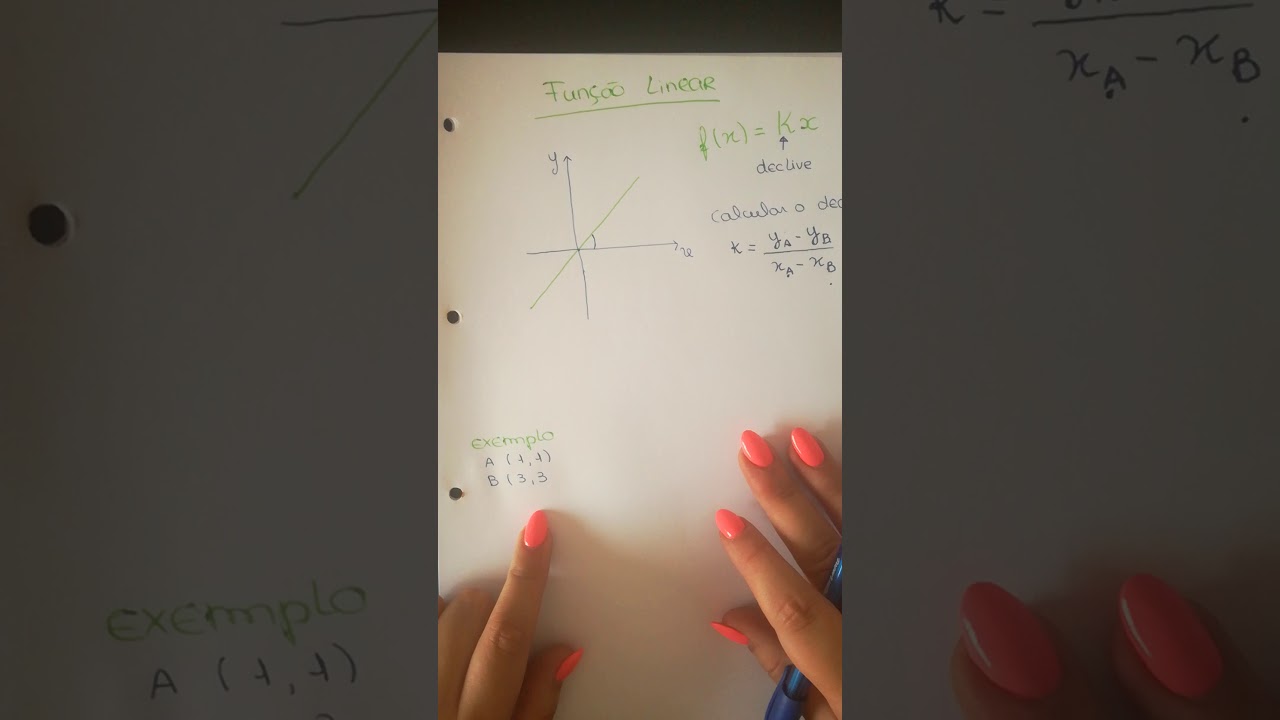 Função Linear
f(x) = Kx
declive
y
x
calcular o dec
K = yA - yB
xA - xB
exemplo
A (1,1)
B (3,3